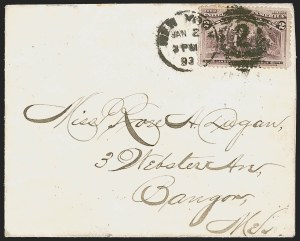 NEW YO
JAN 2
3 PM
93
2 2
Miss Rose A. Dugan,
3 Webster Av,
Bangor,
Me.